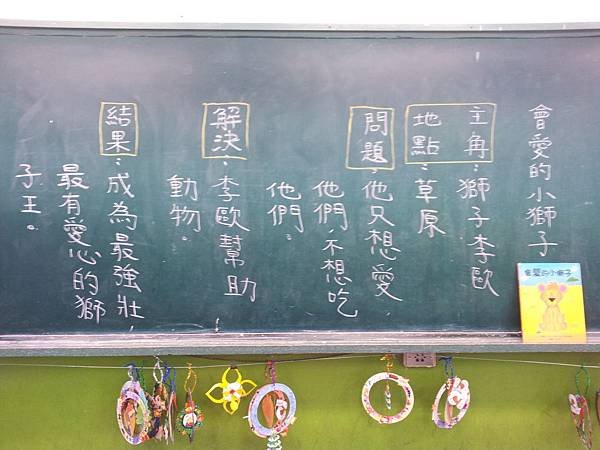 會愛的小獅子
主角：獅子李歐
地點：草原
問題：他只想愛
他們，不想吃
他們。
解決：李歐幫助
動物。
結果：成為最強壯，
最有愛心的獅
子王。
會愛的小獅子